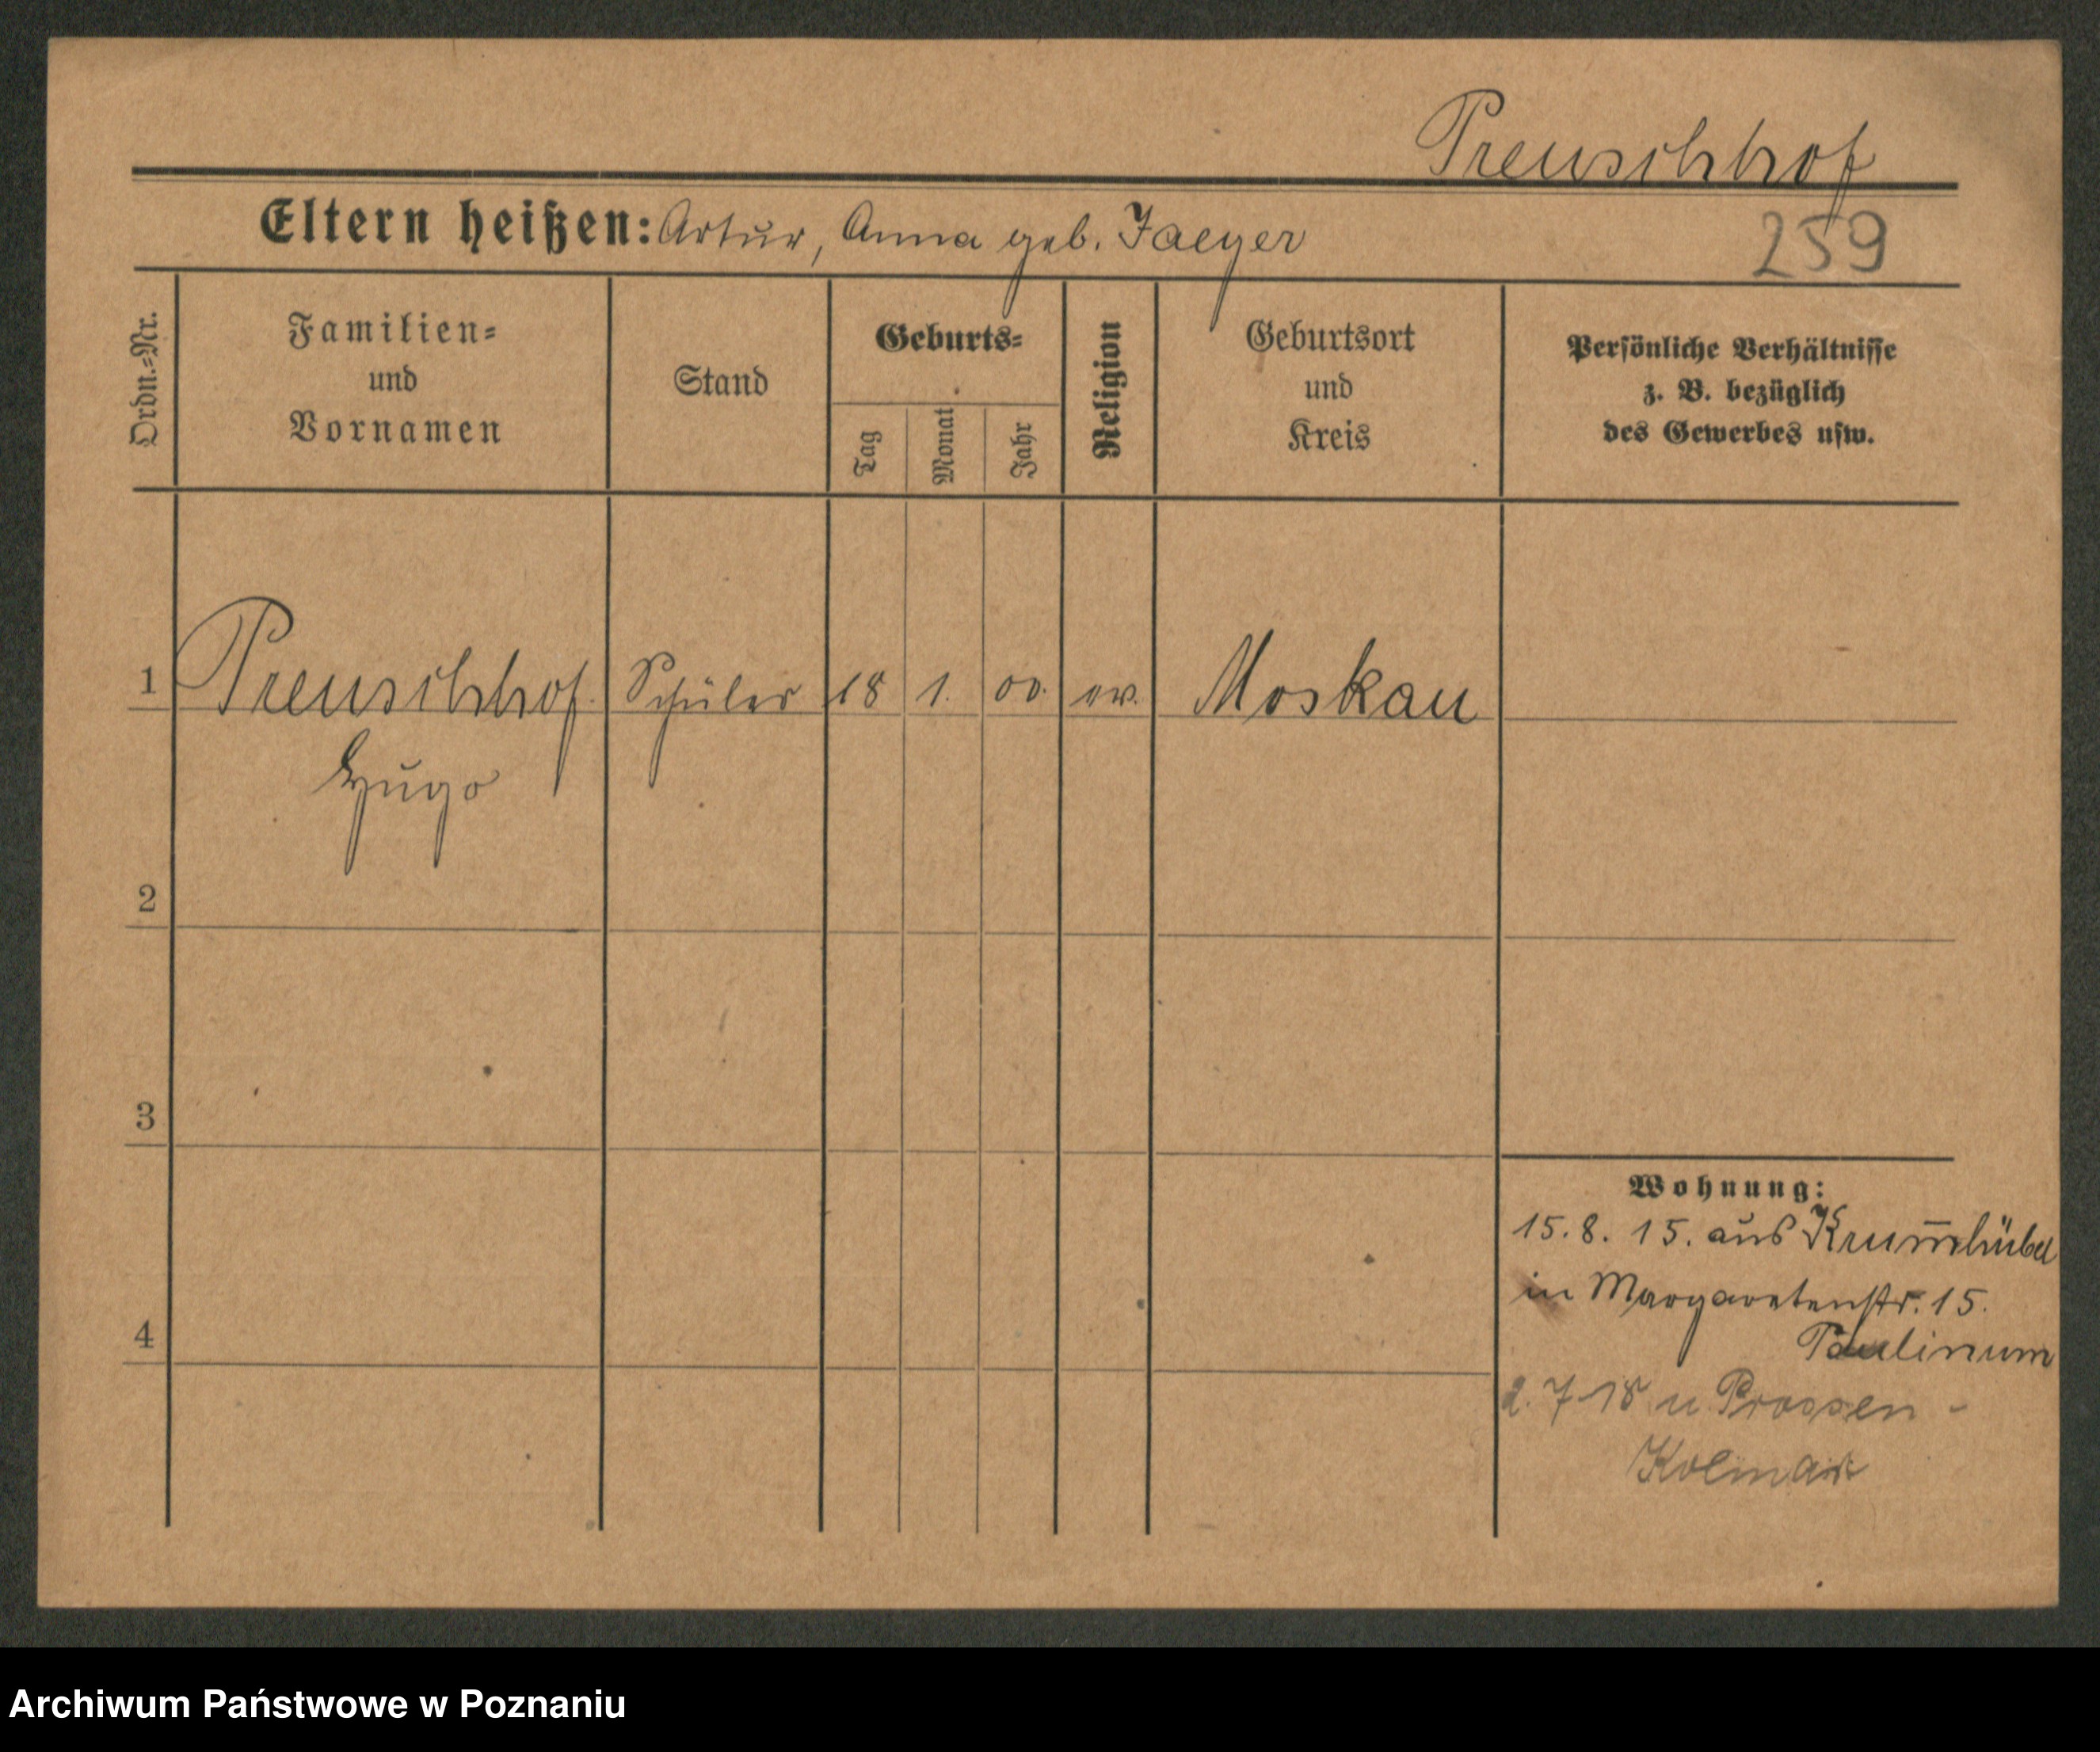 Preuschhof
Eltern heißen: Artur, Anna geb. Jaeger
259
Ordn.=Nr.
Familien=
und
Vornamen
Stand
Geburts=
Tag
Monat
Jahr
Religion
Geburtsort
und
Kreis
Persönliche Verhältnisse
z. B. bezüglich
des Gewerbes usw.
1 Preuschhof Schüler 18 1. 00. ev. Moskau
Hugo
2
3
Wohnung:
15. 8. 15. aus Krum̄hübel
in Margaretenstr. 15.
4
Paulinum
2. 7 18 n Prossen -
Kolmar
Archiwum Państwowe w Poznaniu